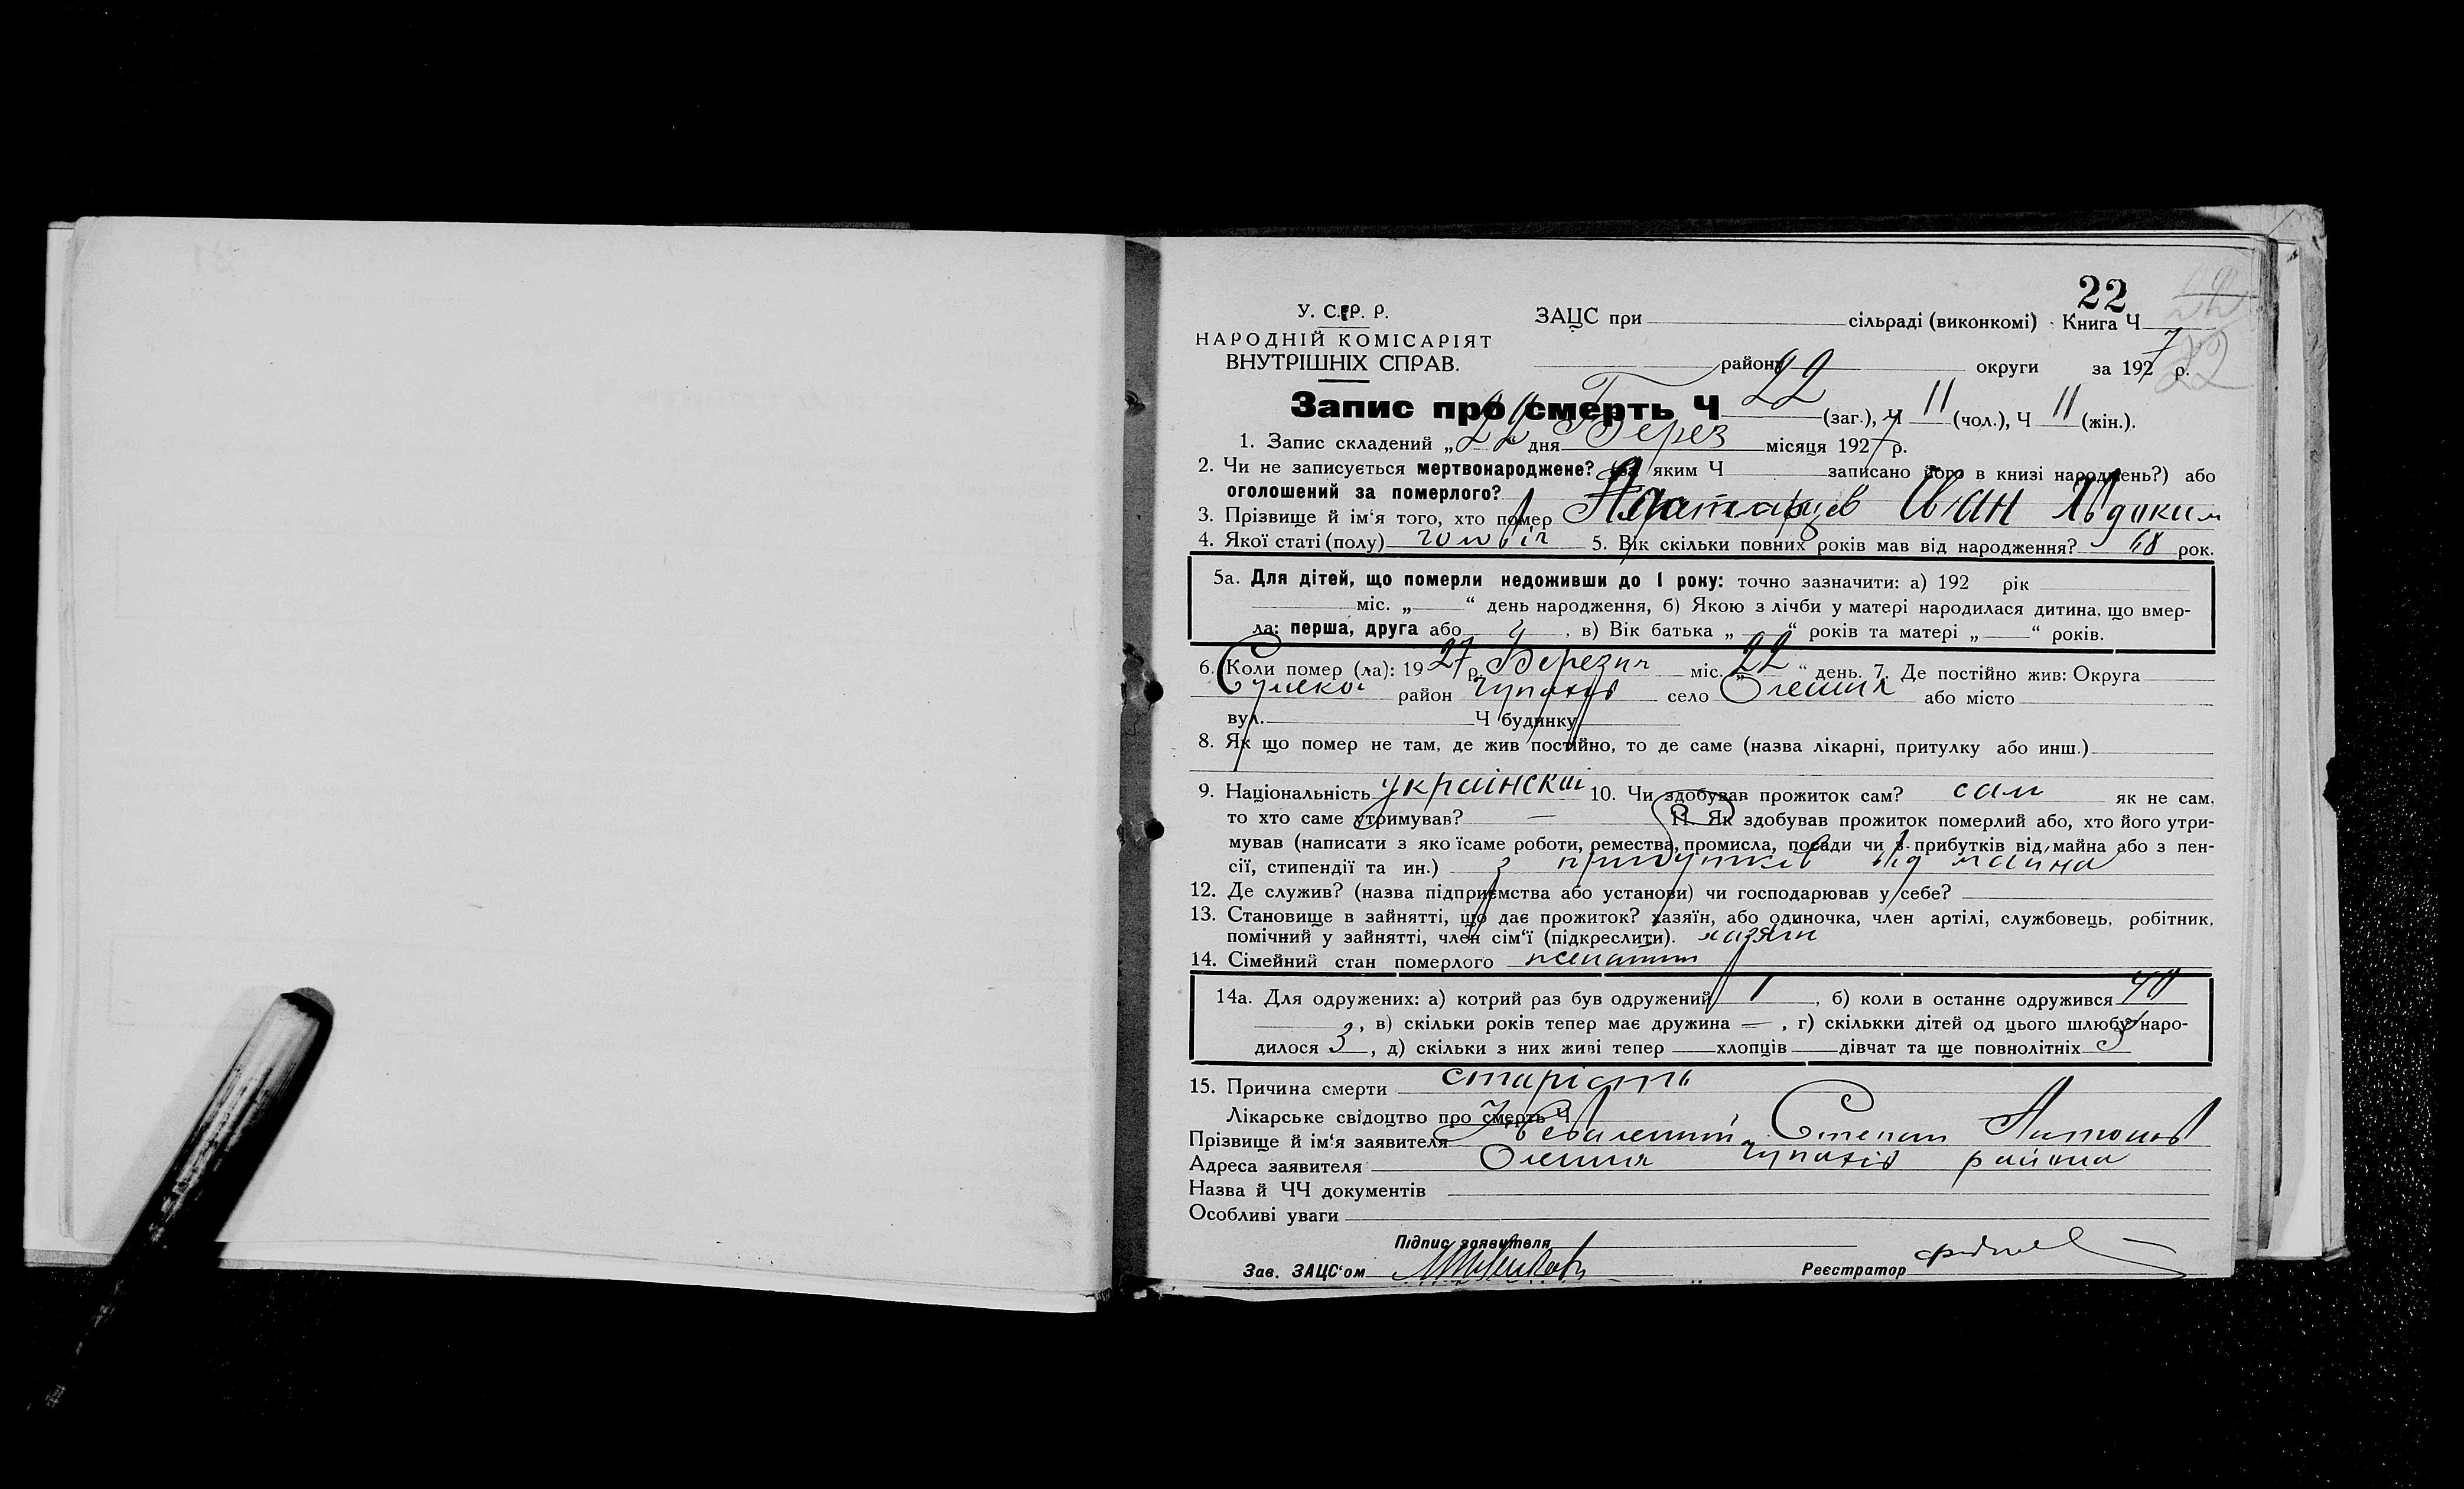 22
У. С. Р. Р.
НАРОДНІЙ КОМІСАРІЯТ
ВНУТРІШНІХ СПРАВ.
ЗАЦС при сільраді (виконкомі) Книга Ч
22
району округи за 1927 р.
Запис про смерть Ч 22 (заг.), Ч 11 (чол.), Ч 11 (жін.).
1. Запис складений „22“ дня Берез місяця 1927 р.
2. Чи не записується мертвонароджене? (за яким Ч записано його в книзі народжень?) або
оголошений за померлого?
3. Прізвище й ім'я того, хто помер Иван Євдоким
4. Якої статі (полу) чоловіч 5. Вік скільки повних років мав від народження? 68 рок.
5а. Для дітей, що померли недоживши до 1 року: точно зазначити: а) 192 рік
міс. „ “ день народження, б) Якою з лічби у матері народилася дитина, що вмер-
ла: перша, друга або ч , в) Вік батька „ “ років та матері „ “ років.
6. Коли помер (ла): 1927 р. Березня міс. „22“ день. 7. Де постійно жив: Округа
Сумской район Чупахів село Олешня або місто
вул. Ч будинку
8. Як що помер не там, де жив постійно, то де саме (назва лікарні, притулку або инш.)
9. Національність украінскаі 10. Чи здобував прожиток сам? сам як не сам,
то хто саме утримував? — 11. Як здобував прожиток померлий або, хто його утри-
мував (написати з яко їсаме роботи, ремества, промисла, посади чи з прибутків від майна або з пен-
сії, стипендії та ин.) з прибутків від майна
12. Де служив? (назва підприємства або установи) чи господарював у себе?
13. Становище в зайнятті, що дає прожиток? хазяїн, або одиночка, член артілі, службовець, робітник,
помічний у зайнятті, член сім'ї (підкреслити). хазяін
14. Сімейний стан померлого женатий
14а. Для одружених: а) котрий раз був одружений 1 , б) коли в останнє одружився
, в) скільки років тепер має дружина — , г) скількки дітей од цього шлюбу наро-
дилося 3 , д) скільки з них живі тепер хлопців дівчат та ще повнолітніх 3
15. Причина смерти старість
Лікарське свідоцтво про смерть Ч
Прізвище й ім'я заявителя Степан Антонов
Адреса заявителя Олешня Чупахів района
Назва й ЧЧ документів
Особливі уваги
Підпис заявителя
Зав. ЗАЦС'ом
Реєстратор